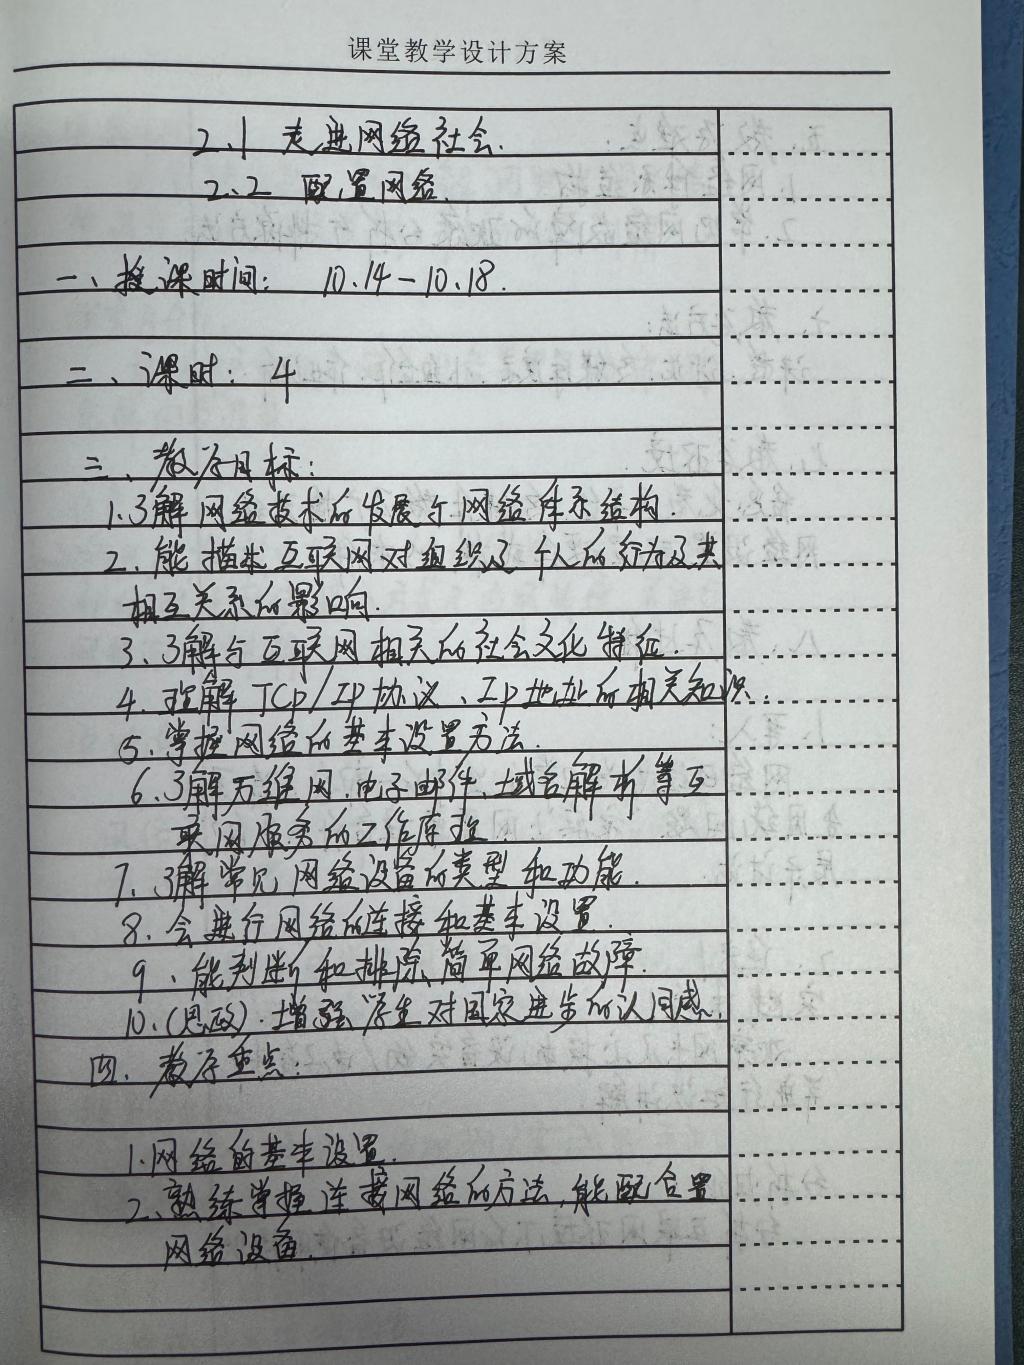 课堂教学设计方案
2.1 走进网络社会.
2.2 配置网络.
一、授课时间: 10.14-10.18.
二、课时: 4
三、教学目标:
1.了解网络技术的发展与网络体系结构.
2、能描述互联网对组织及个人的行为及其
相互关系的影响.
3、了解与互联网相关的社会文化特征.
4、理解TCP/IP协议、IP地址的相关知识.
5、掌握网络的基本设置方法.
6、了解万维网、电子邮件、域名解析等互
联网服务的工作原理.
7、了解常见网络设备的类型和功能.
8、会进行网络的连接和基本设置.
9、能判断和排除简单网络故障.
10、(思政).增强学生对国家进步的认同感.
四、教学重点:
1.网络的基本设置.
2、熟练掌握连接网络的方法,能配合置
网络设备.